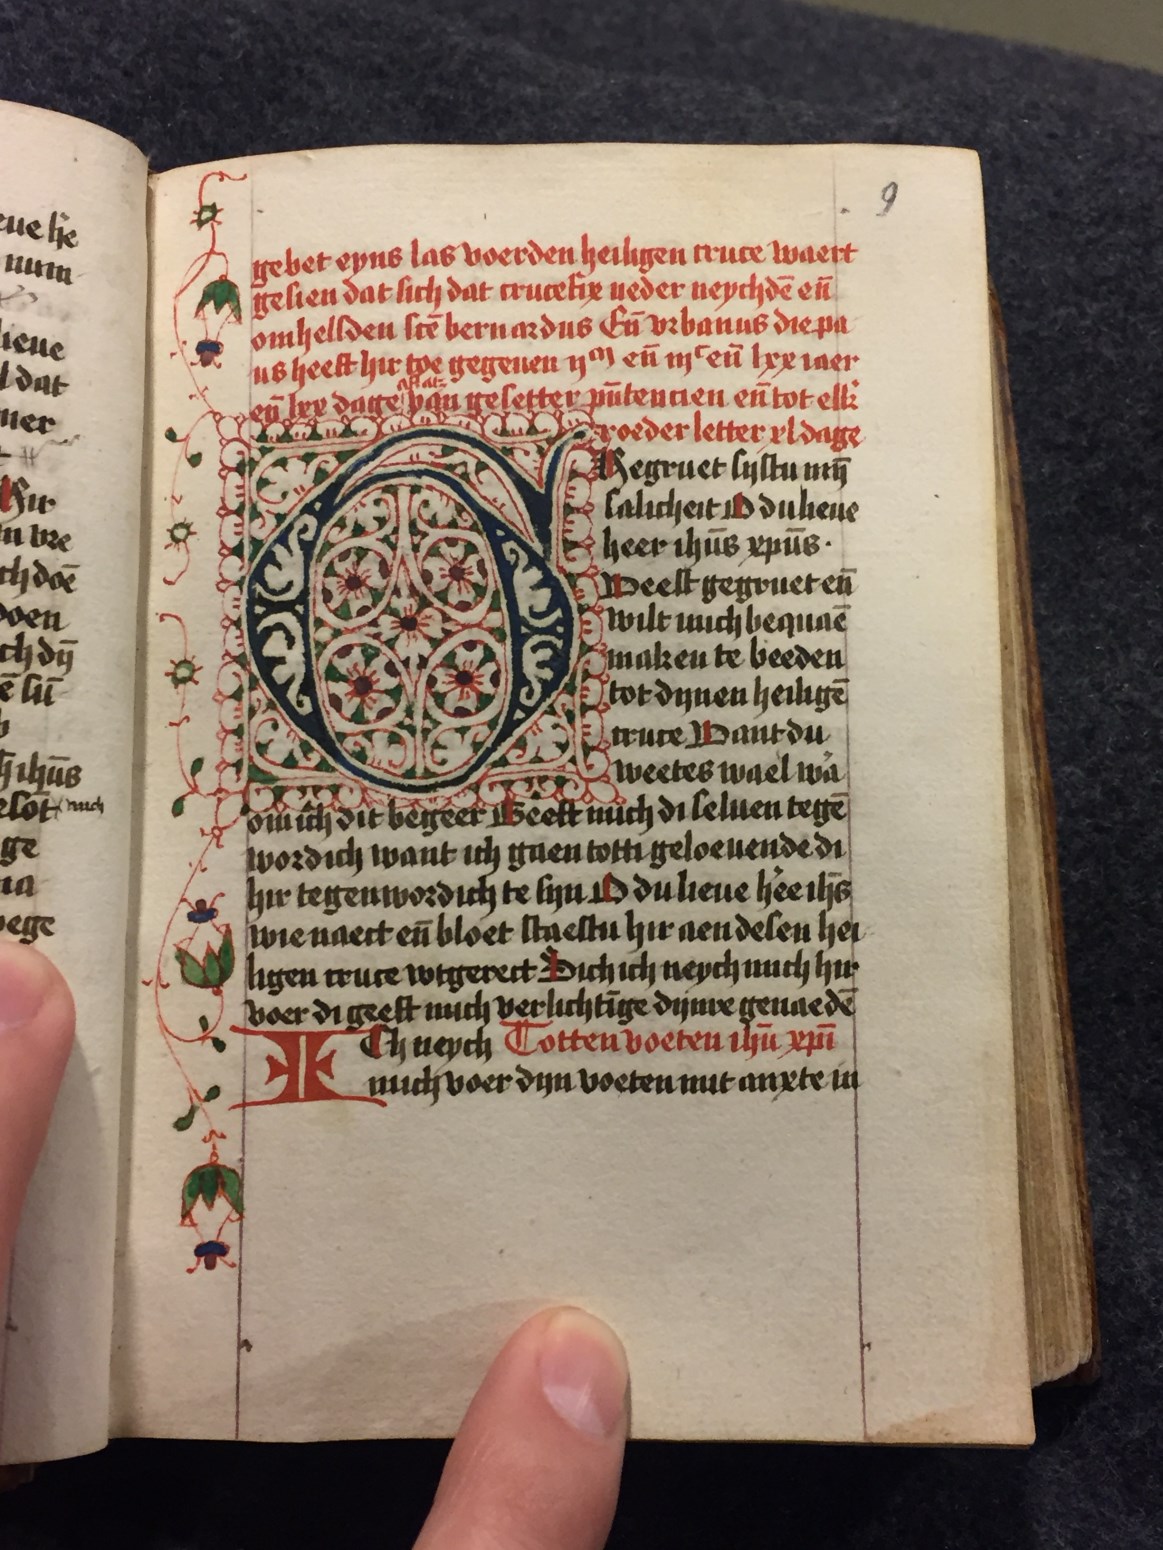 eue h̄e
mm
lieue
l dat
mer
Hir
n vre
ch doē
doen
ch dȳ
ē sū
ih̄us
mich
ge
na
wege
9
gebet eyns las voerden heiligen cruce waert
gesien dat sich dat crucefix neder neychdē eñ
omhelsden stē bernardus Eñ vrbanus die pa
us heeft hir toe gegeuen ijᵐ eñ iijᶜ eñ lxx iaer
aflatz
eñ lxx dage van gesetter pñtencien eñ tot elk̄
roeder letter xl dage
Gegruet sijstu mȳ
salicheit O du lieue
heer ih̄us xp̄us·
Weest gegruet eñ
wilt mich bequaē
maken te beeden
tot dijnen heiligē
cruce Want du
weetes wael wa͛
om ich dit begeer Geeft mich di seluen tegē
wordich want ich gaen totti geloeuende di
hir tegenwordich te sijn O du lieue h̄ee ih̄s
wie naect eñ bloet staestu hir aen desen hei
ligen cruce wtgerect Dich ich neych mich hir
voer di geeft mich verlichtīge dijnre genaedē
ICh neych Totten voeten ih̄u xp̄i
mich voer dijn voeten mit anxte in